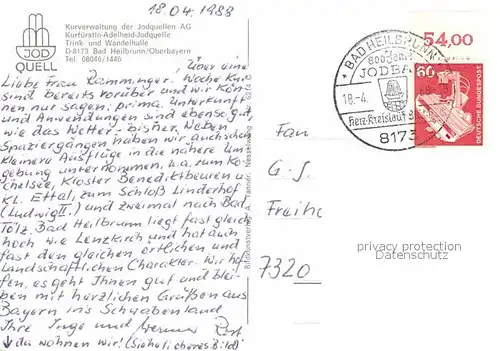 18.04.1988
JOD
QUELL
Kurverwaltung der Jodquellen AG
Kurfürstin-Adelheid-Jodquelle
Trink- und Wandelhalle
D-8173 Bad Heilbrunn/Oberbayern
Tel. 08046/1446
Über eine
Liebe Frau Ramminger! Woche Kur
sind bereits vorüber und wir kön-
nen nur sagen: prima. Unterkunft
und Anwendungen sind ebenso gut,
wie das Wetter - bisher. Neben
Spaziergängen haben wir auch schon
kleinere Ausflüge in die nähere Um-
gebung unternommen, u.a. zum Ko-
chelsee, Kloster Benediktbeuren u.
Kl. Ettal, zum Schloß Linderhof
(Ludwig II.) und zweimal nach Bad
Tölz. Bad Heilbrunn liegt fast gleich
hoch wie Lenzkirch und hat auch
fast den gleichen örtlichen und
landschaftlichen Charakter. Wir hof-
fen, es geht Ihnen gut und blei-
ben mit herzlichen Grüßen aus
Bayern ins Schwabenland
Ihre Inge und Werner
↓ da wohnen wir! (Siehe oberes Bild)
54,00
BAD HEILBRUNN
JODBAD
18.-4.
Herz-Kreislauf
8173
60
DEUTSCHE BUNDESPOST
Fam
G.-J.
Freiho
7320
privacy protection
Datenschutz